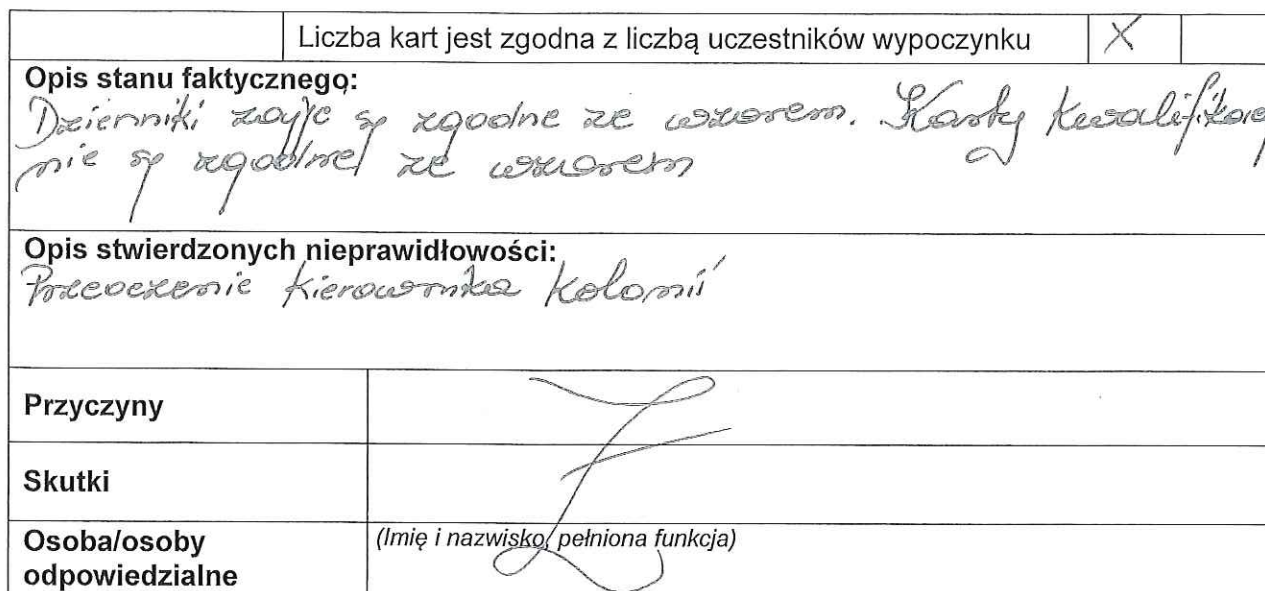 Liczba kart jest zgodna z liczbą uczestników wypoczynku X
Opis stanu faktycznego:
Dzienniki zajęć są zgodne ze wzorem. Karty kwalifikacyj
nie są zgodne ze wzorem
Opis stwierdzonych nieprawidłowości:
Przeoczenie kierownika kolonii
Przyczyny
Skutki
Osoba/osoby (Imię i nazwisko, pełniona funkcja)
odpowiedzialne